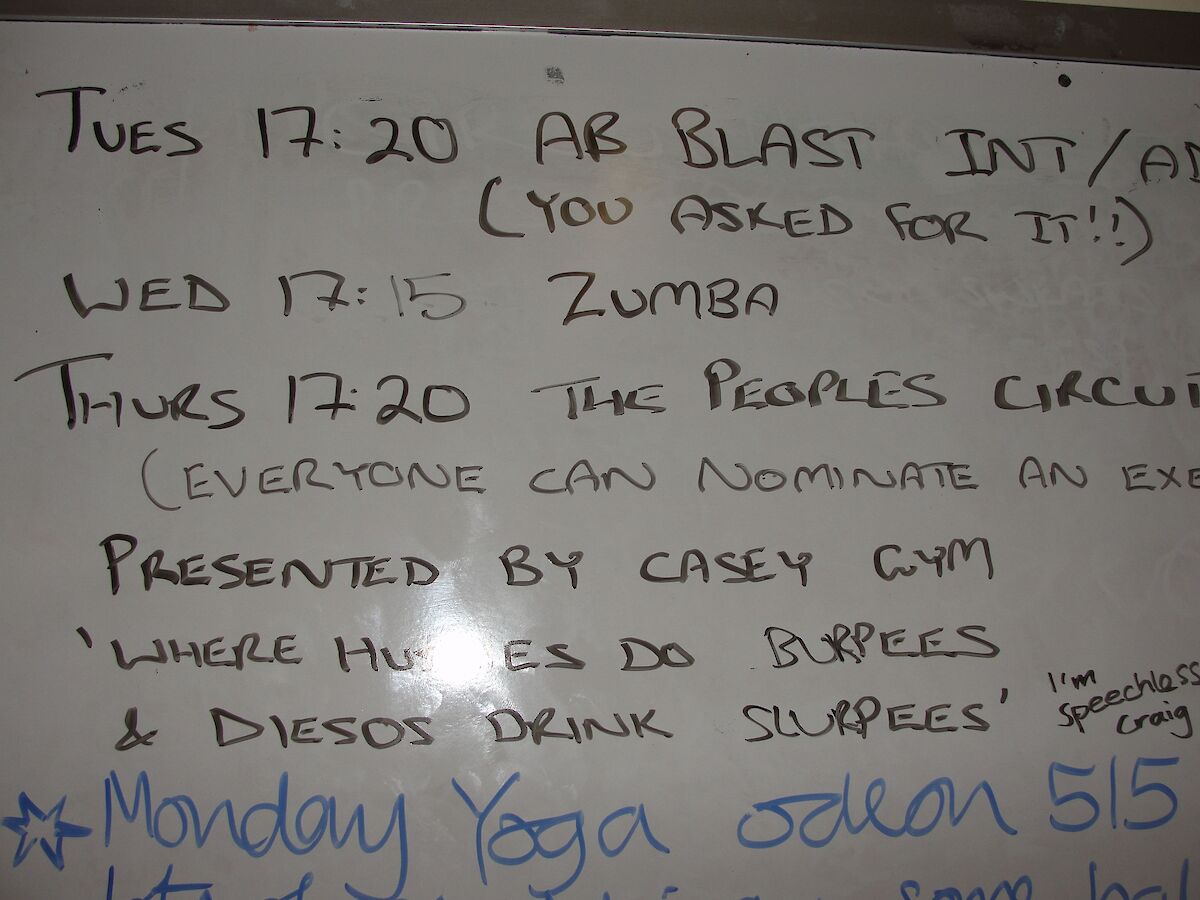 TUES 17:20 AB BLAST INT/AD
(YOU ASKED FOR IT!!)
WED 17:15 ZUMBA
THURS 17:20 THE PEOPLES CIRCUIT
(EVERYONE CAN NOMINATE AN EXE
PRESENTED BY CASEY GYM
'WHERE DO BURPEES
& DIESOS DRINK SLURPEES'
I'm
speechless
craig
Monday Yoga odeon 515
some